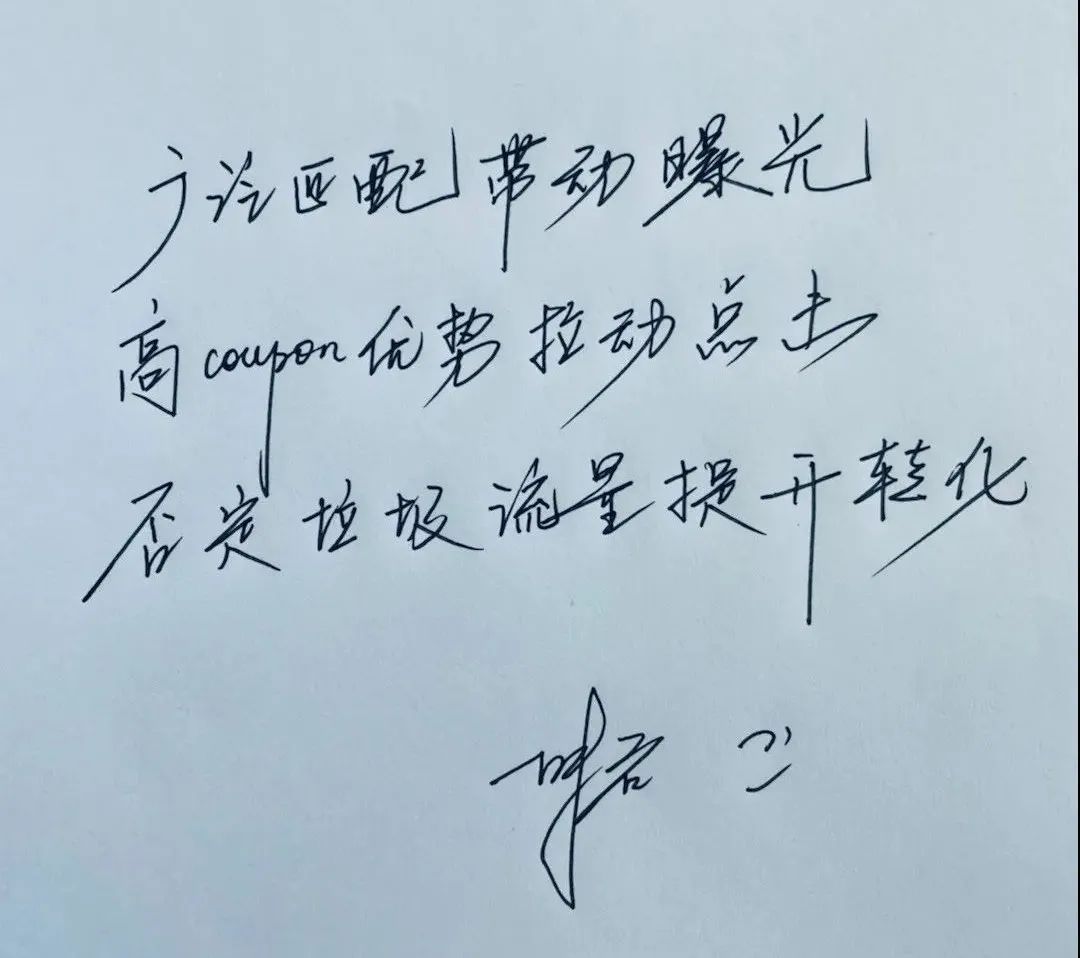 广泛匹配带动曝光
高coupon优势拉动点击
否定垃圾流量提升转化